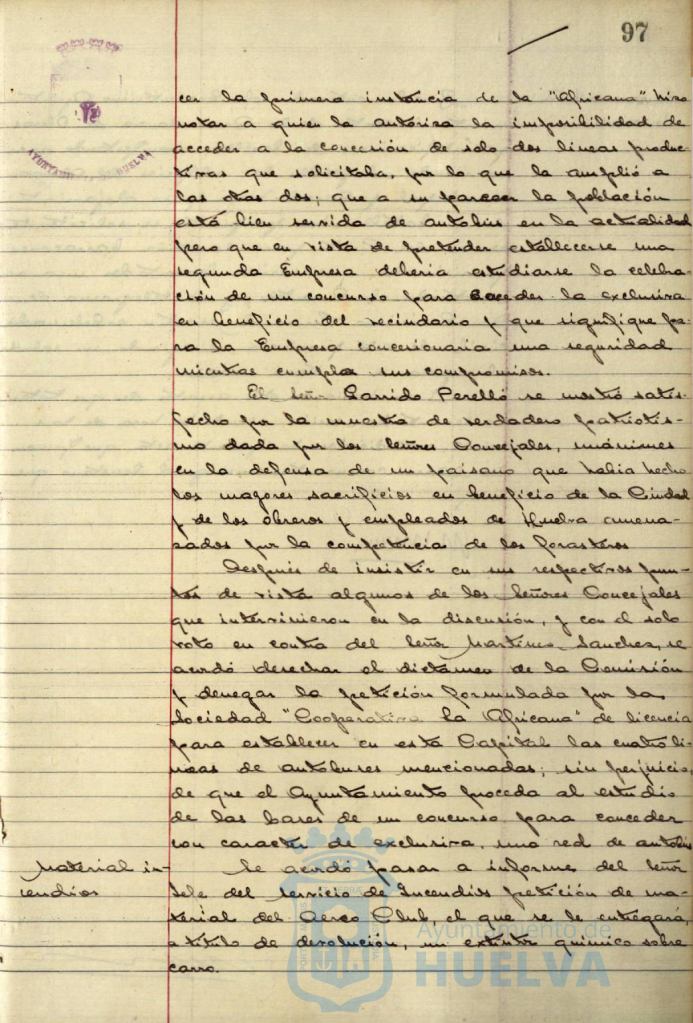 97
AYUNTAMIENTO DE HUELVA
cer la primera instancia de la "Africana" hizo
notar a quien la autoriza la imposibilidad de
acceder a la concesión de solo dos lineas produc-
tivas que solicitaba, por lo que la amplió a
las otras dos; que a su parecer la población
está bien servida de autobús en la actualidad
pero que en vista de pretender establecerse una
segunda Empresa deberia estudiarse la celebra-
ción de un concurso para acceder la exclusiva
en beneficio del vecindario y que signifique pa-
ra la Empresa concesionaria una seguridad
mientras cumpla sus compromisos.
El Señor Garrido Perelló se mostró satis-
fecho por la muestra de verdadero patriotis-
mo dada por los Señores Concejales, unánimes
en la defensa de un paisano que habia hecho
los mayores sacrificios en beneficio de la Ciudad
y de los obreros y empleados de Huelva amena-
zados por la competencia de los forasteros
Después de insistir en sus respectivos pun-
tos de vista algunos de los Señores Concejales
que intervinieron en la discusión, y con el solo
voto en contra del Señor Martínez Sanchez, se
acordó desechar el dictamen de la Comisión
y denegar la petición formulada por la
Sociedad "Cooperativa la Africana" de licencia
para establecer en esta Capital las cuatro li-
neas de autobuses mencionadas; sin perjuicio
de que el Ayuntamiento proceda al estudio
de las bases de un concurso para conceder
con caracter de exclusiva, una red de autobús
Material in-
cendios
Se acordó pasar a informe del Señor
Jefe del servicio de Incendios petición de ma-
terial del Aereo Club, el que se le entregará,
a titulo de devolución, un extintor quimico sobre
carro.
Ayuntamiento de
HUELVA